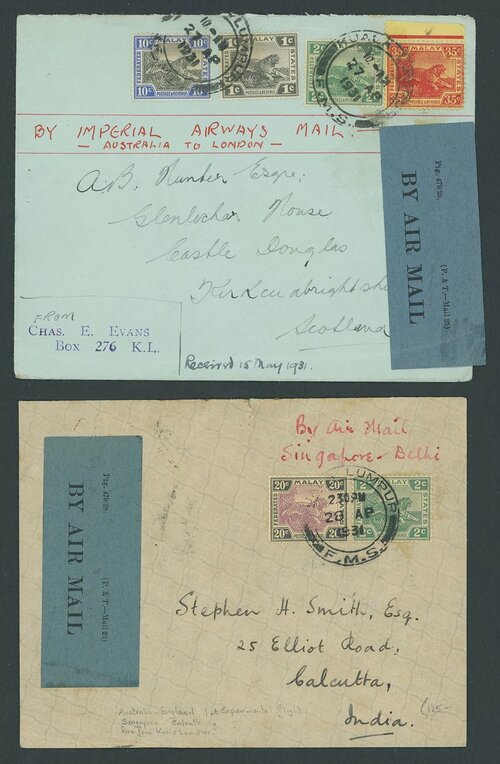 10c FEDERATED MALAY STATES 10c
POSTAGE & REVENUE
1c FEDERATED MALAY STATES 1c
POSTAGE & REVENUE
2c MALAY STATES 2c
MALAY STATES 35c
POSTAGE & REVENUE
LUMPUR
27 AP
1931
KUALA
27 AP
1931
F.M.S.
BY IMPERIAL AIRWAYS MAIL.
— AUSTRALIA TO LONDON —
A.B. Hunter Esqre;
Glenlochar House
Castle Douglas
Kirkcudbrightsh
Scotland
Ptg. 479/28.
BY AIR MAIL
(P. & T.—Mail 25)
FROM
CHAS. E. EVANS
BOX 276 K.L.
Received 15 May 1931.
By Air Mail
Singapore - Delhi
Ptg. 479/28.
BY AIR MAIL
(P. & T.—Mail 25)
20c FEDERATED MALAY STATES 20c
20c 20c
2c MALAY STATES 2c
LUMPUR
2 30 PM
28 AP
1931
F.M.S.
Stephen H. Smith, Esq.
25 Elliot Road,
Calcutta,
India.
Australia-England 1st Experimental flight
Singapore Calcutta
from Kuala Lumpur